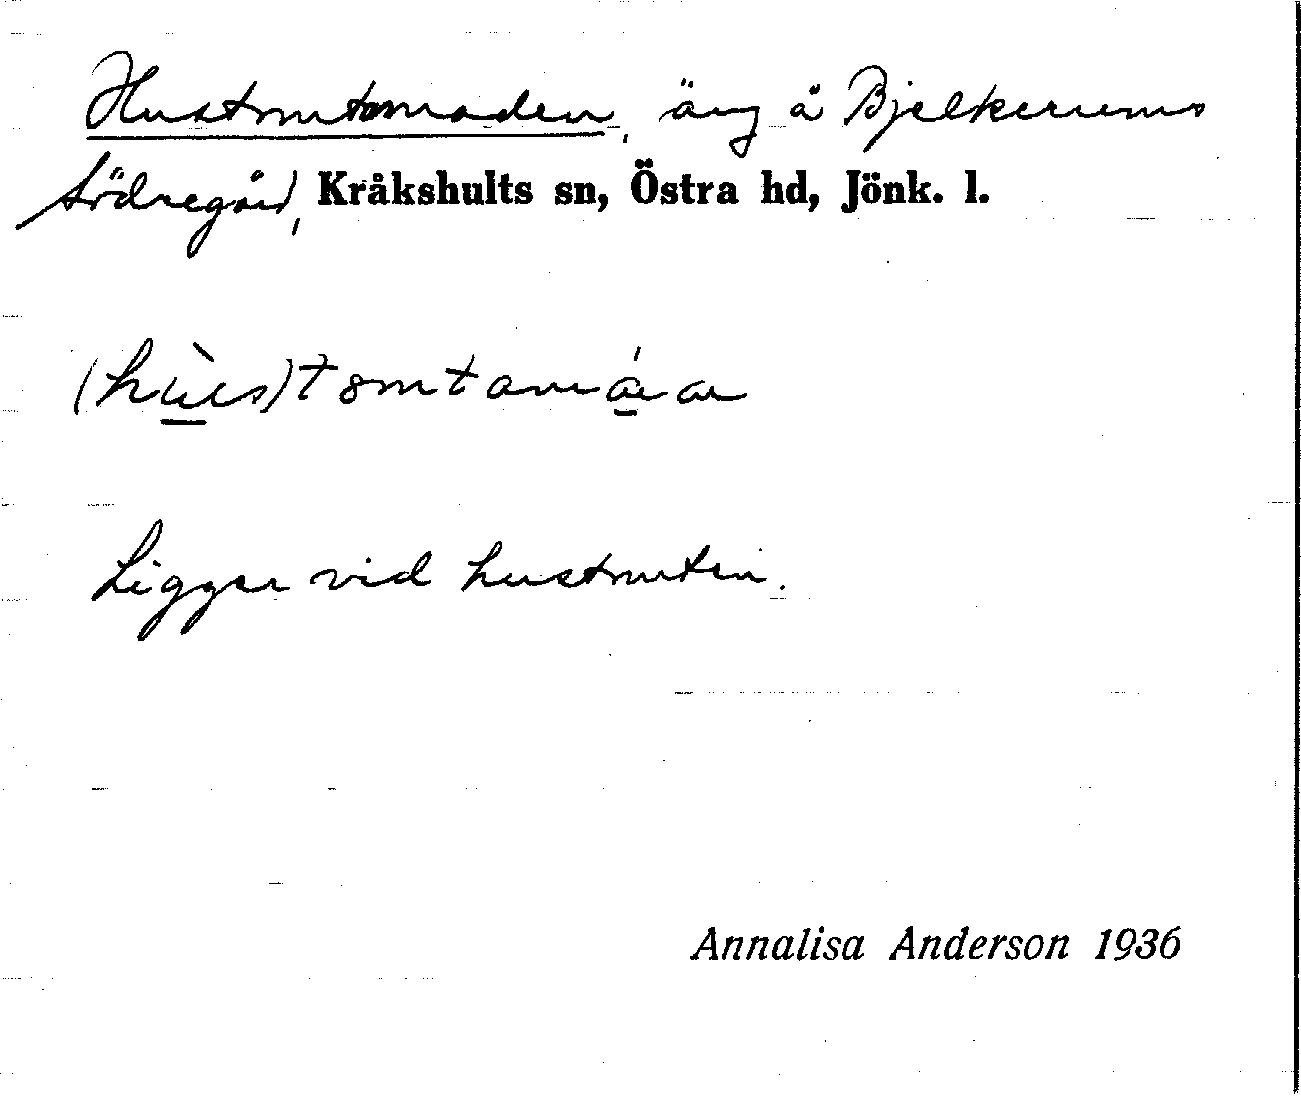 Hustomtamaden, äng å Bjelkerums
Södregård, Kråkshults sn, Östra hd, Jönk. l.
Ligger vid hustomten.
Annalisa Anderson 1936